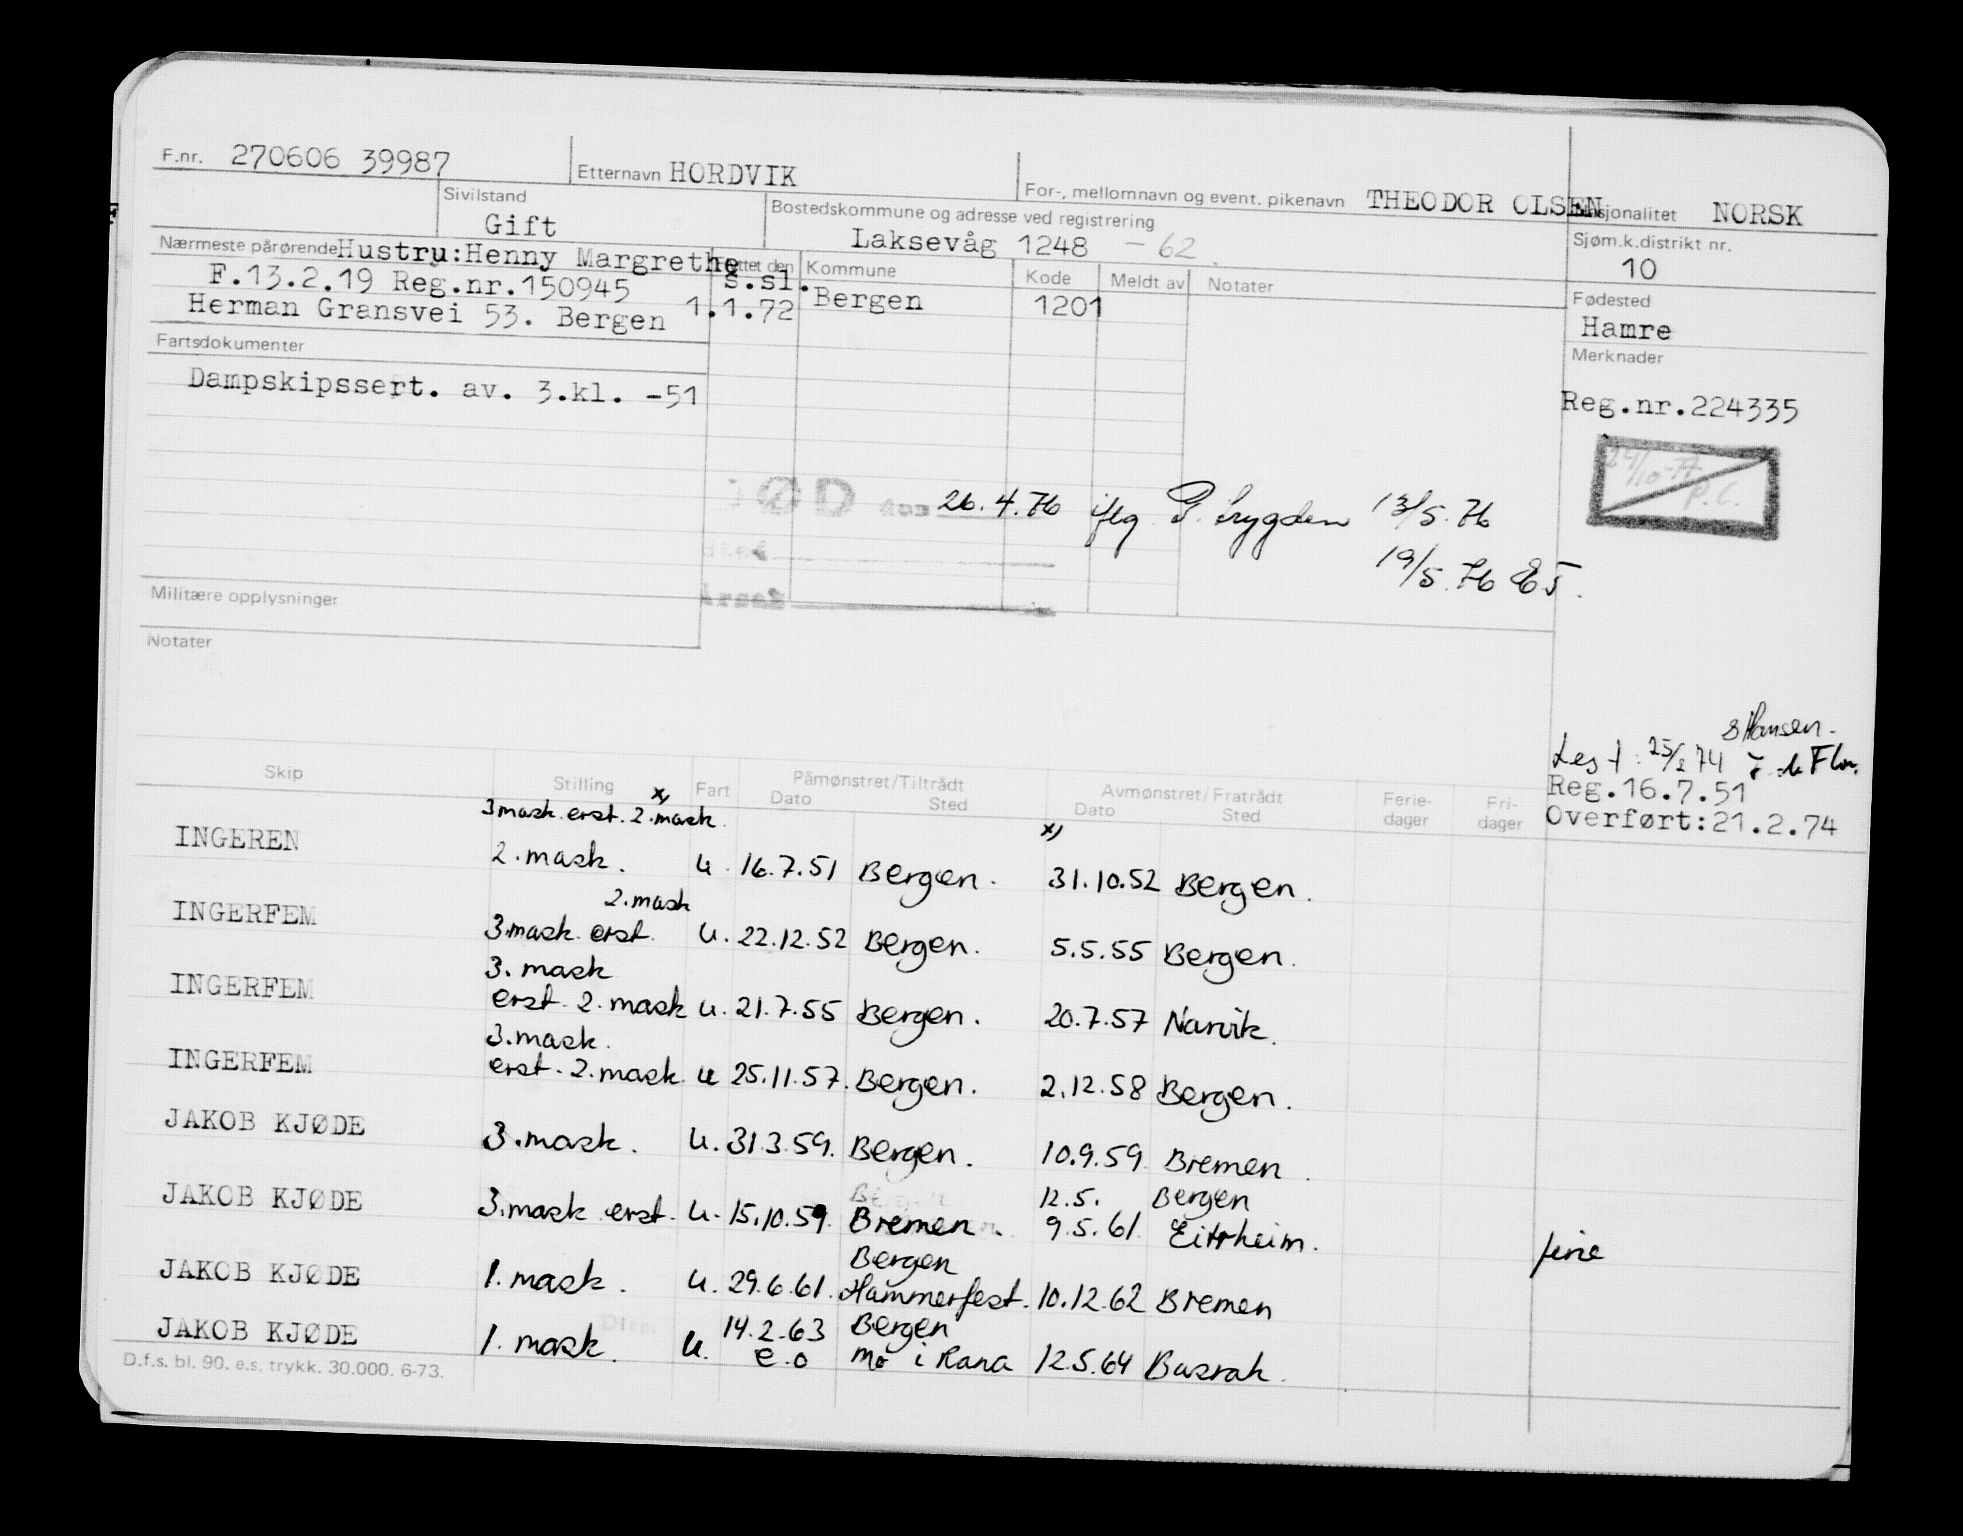 F.nr. 270606 39987 Etternavn HORDVIK For-, mellomnavn og event. pikenavn THEODOR OLSEN Nasjonalitet NORSK
Sivilstand Gift Bostedskommune og adresse ved registrering Laksevåg 1248 - 62. Sjøm.k.distrikt nr. 10
Nærmeste pårørende Hustru:Henny Margrethe
F.13.2.19 Reg.nr.150945
Herman Gransvei 53. Bergen
Flyttet den Kommune Kode Meldt av Notater
s.sl.
1.1.72 Bergen 1201
Fødested
Hamre
Merknader
Reg.nr.224335
Fartsdokumenter
Dampskipssert. av. 3.kl. -51
P.C.
DØD den 26.4.76 iflg 13/5.76
19/5.76
Årsak
Militære opplysninger
Notater
S Hansen.
Reg.16.7.51
Overført:21.2.74
Skip Stilling Fart Påmønstret/Tiltrådt Avmønstret/Fratrådt Ferie- Fri-
Dato Sted Dato Sted dager dager
3 mask. erst. 2. mask. x) x)
INGEREN 2. mask. u. 16.7.51 Bergen. 31.10.52 Bergen.
2. mask
INGERFEM 3. mask erst. u. 22.12.52 Bergen. 5.5.55 Bergen.
3. mask
INGERFEM erst. 2. mask u. 21.7.55 Bergen. 20.7.57 Narvik.
3. mask.
INGERFEM erst. 2. mask. u 25.11.57. Bergen. 2.12.58 Bergen.
JAKOB KJØDE 3. mask. u. 31.3.59. Bergen. 10.9.59 Bremen.
12.5. Bergen
JAKOB KJØDE 3. mask erst. u. 15.10.59. Bremen. 9.5.61. Eitrheim. ferie
Bergen
JAKOB KJØDE 1. mask. u. 29.6.61. Hammerfest. 10.12.62 Bremen
14.2.63 Bergen
JAKOB KJØDE 1. mask. u. e.o Mo i Rana 12.5.64 Basrah.
D.f.s. bl. 90. e.s. trykk. 30.000. 6-73.